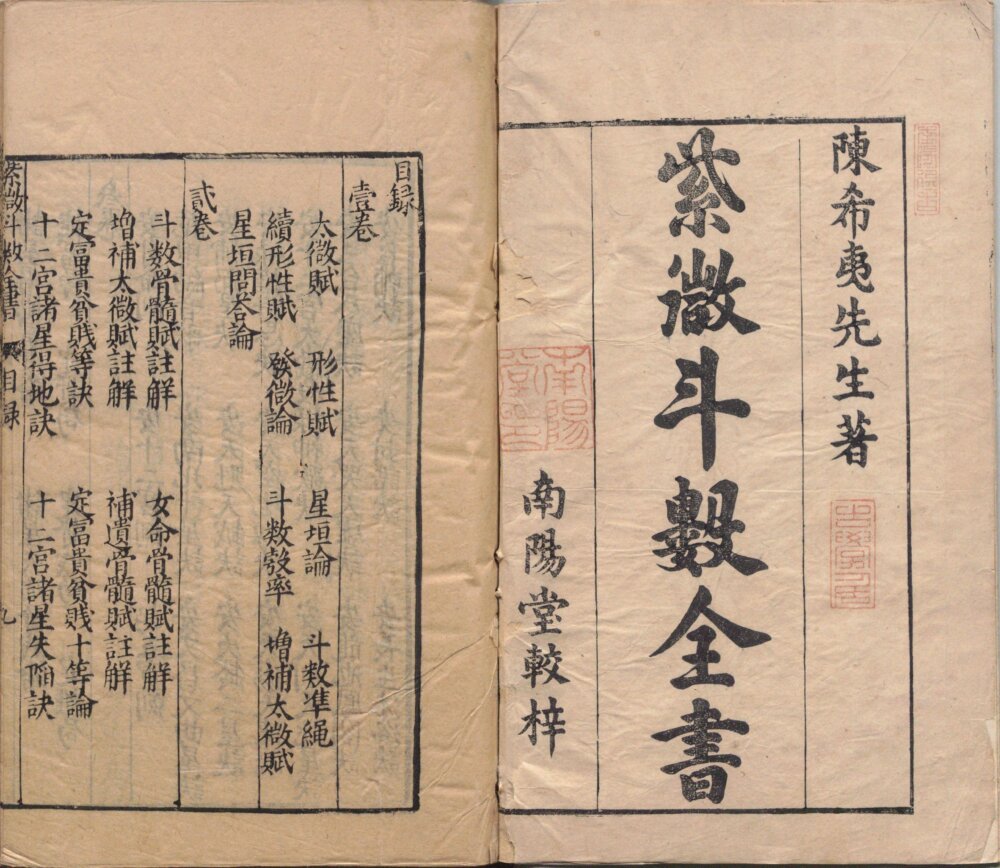 陳希夷先生著
紫微斗數全書
南陽堂較梓
南陽堂印
目録
壹卷
太微賦 形性賦 星垣論 斗数準繩
續形性賦 發微論 斗数彀率 增補太微賦
星垣問答論
貳卷
斗数骨髓賦註解 女命骨髓賦註解
增補太微賦註解 補遺骨髓賦註解
定富貴貧賤等訣 定富貴貧賤十等論
十二宫諸星得地訣 十二宫諸星失陥訣
紫微斗数全書 目録 九